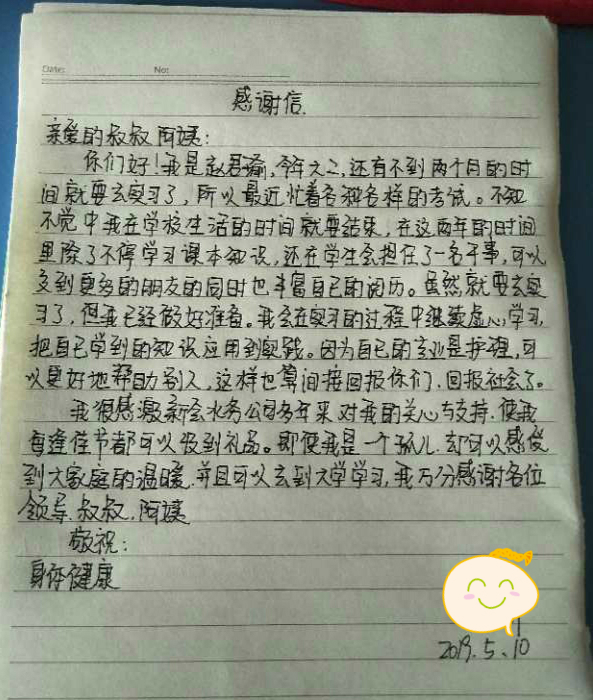 Date:
No:
感谢信.
亲爱的叔叔阿姨:
你们好!我是赵君瑜,今年大二,还有不到两个月的时
间就要去实习了,所以最近忙着各种各样的考试。不知
不觉中我在学校生活的时间就要结束,在这两年的时间
里除了不停学习课本知识,还在学生会担任了一名干事,可以
交到更多的朋友的同时也丰富自己的阅历。虽然就要去实
习了,但我已经做好准备。我会在实习的过程中继续虚心学习,
把自己学到的知识应用到实践。因为自己的专业是护理,可
以更好地帮助别人,这样也算间接回报你们.回报社会了。
我很感激新会水务公司多年来对我的关心与支持.使我
每逢佳节都可以收到礼品。即使我是一个孤儿.却可以感受
到大家庭的温暖.并且可以去到大学学习,我万分感谢各位
领导.叔叔.阿姨
敬祝:
身体健康
2019.5.10